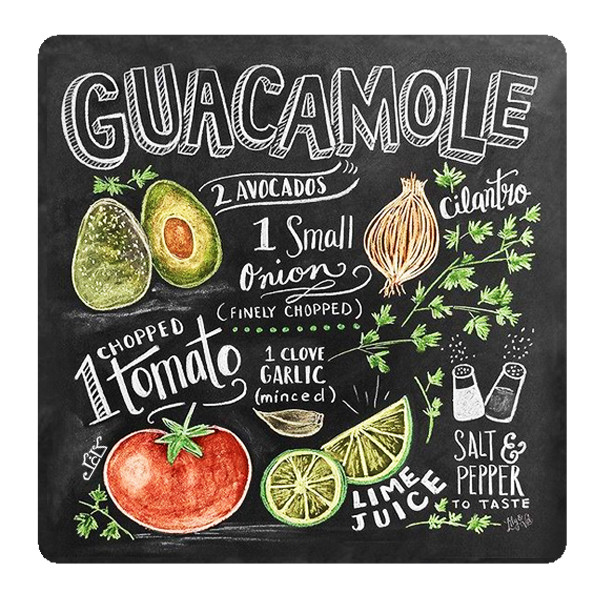 GUACAMOLE
2 AVOCADOS
1 Small
Onion
(FINELY CHOPPED)
Cilantro
1 CHOPPED
tomato
1 CLOVE
GARLIC
(minced)
LIME
JUICE
SALT &
PEPPER
TO TASTE
Lily & Val